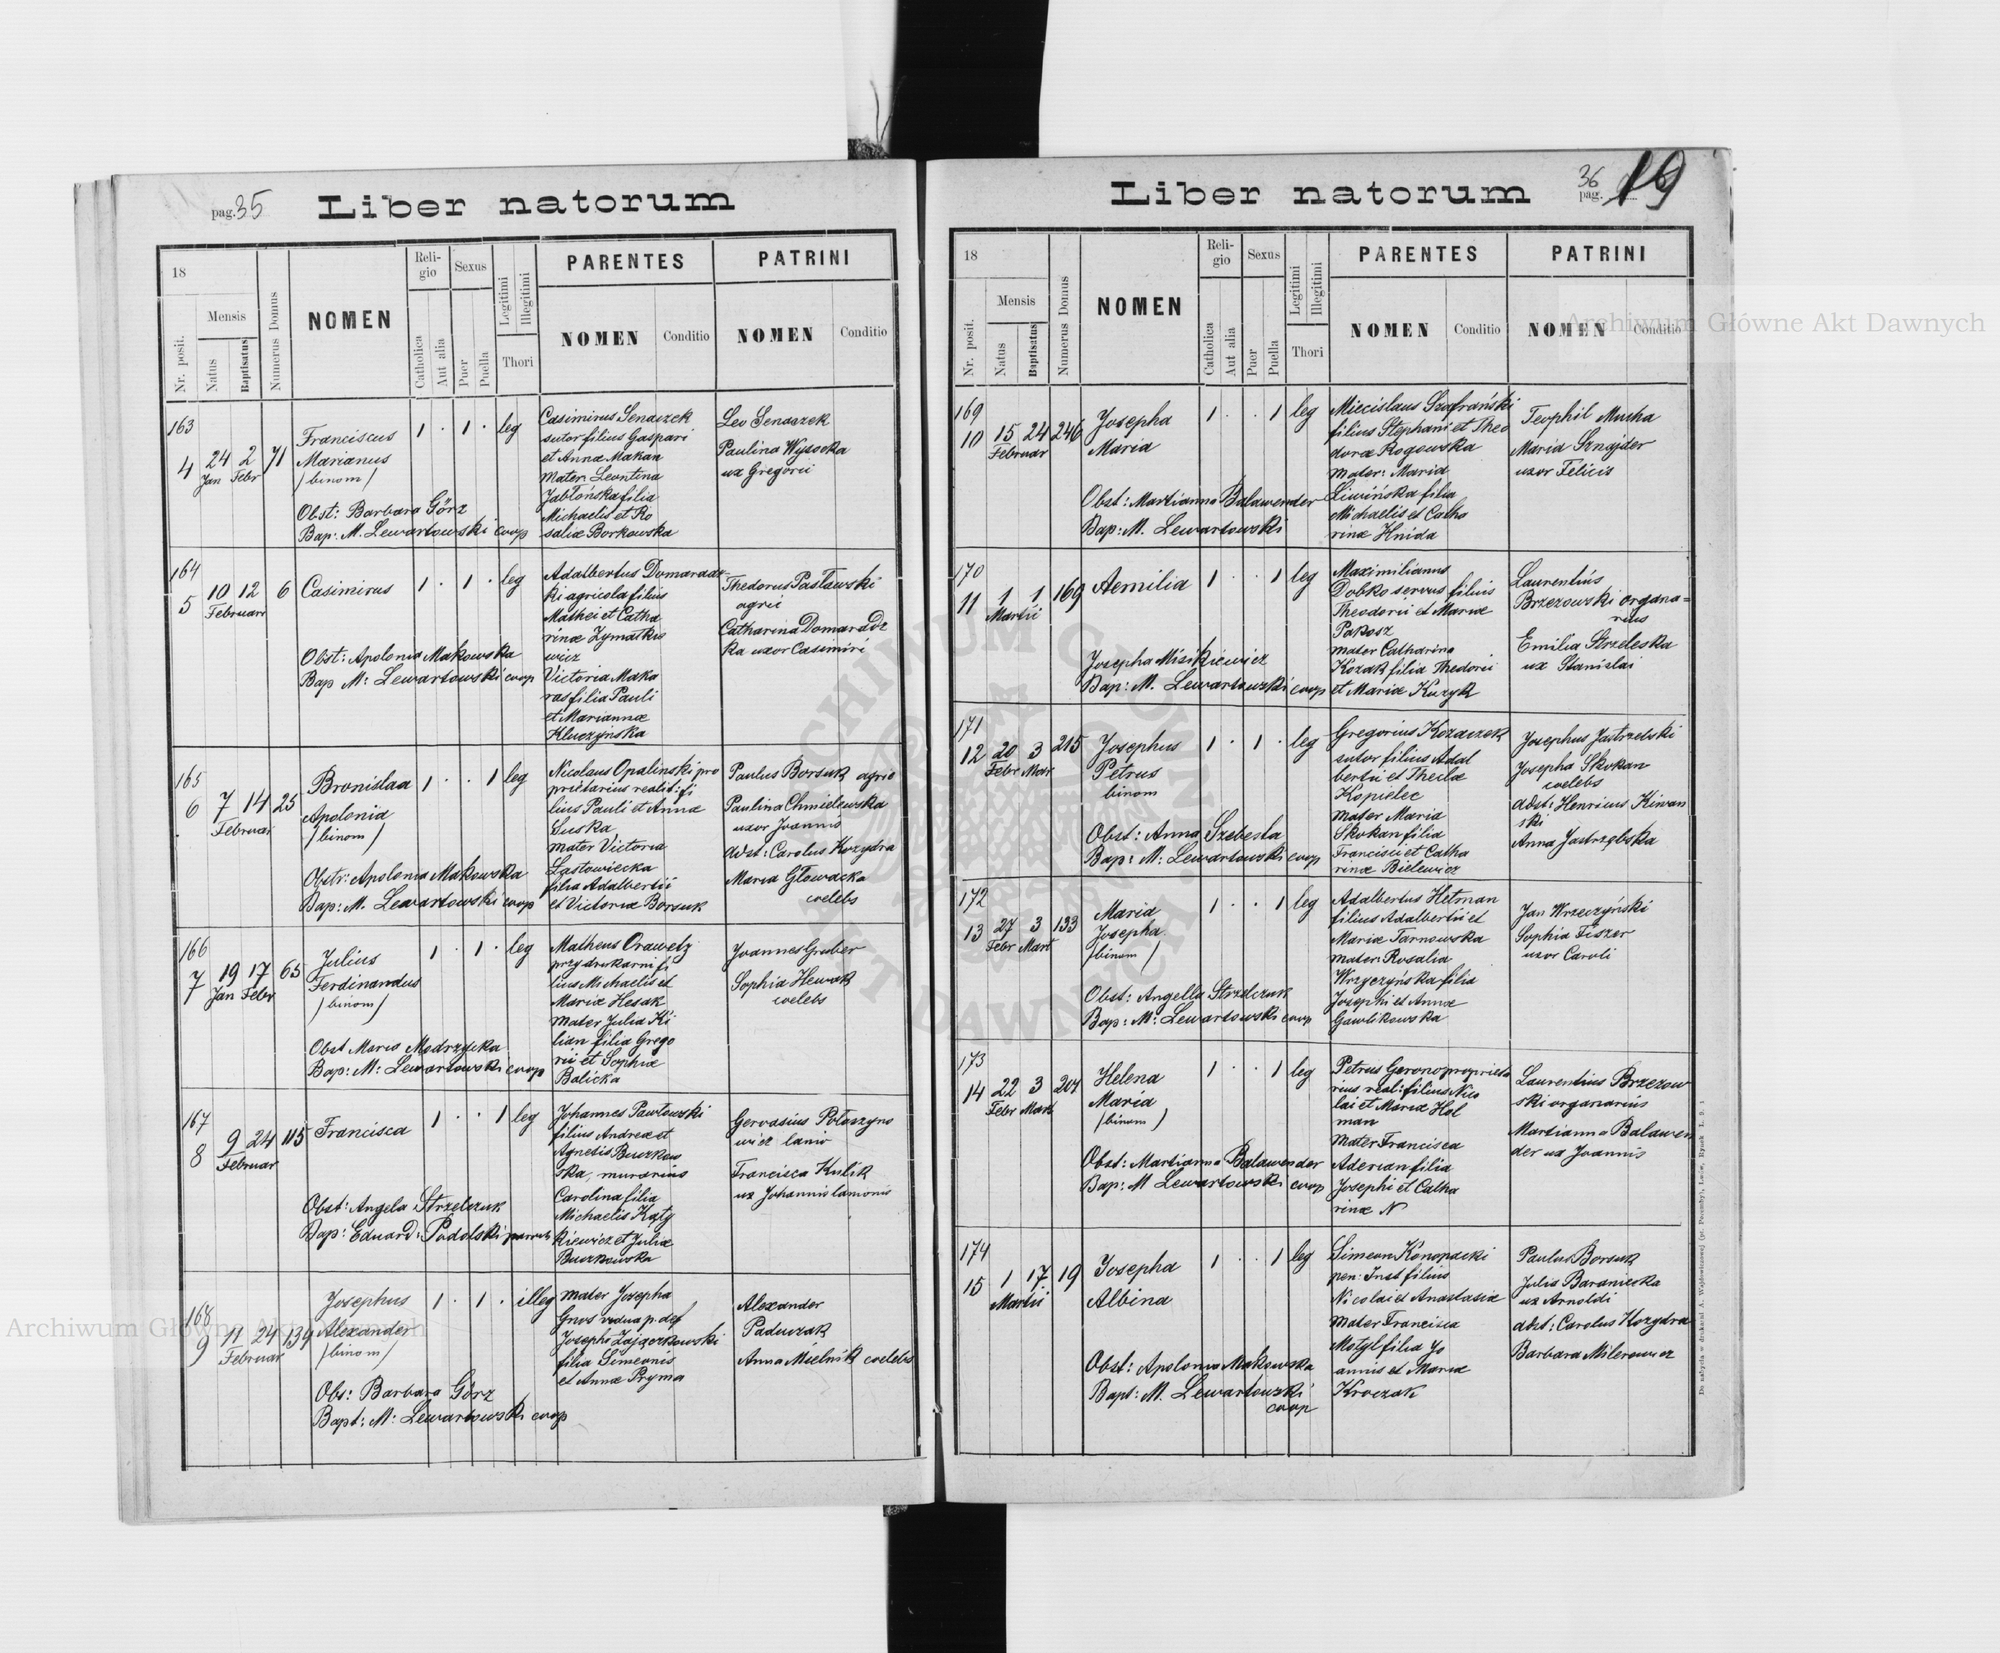 pag. 35
Liber natorum
18
Nr. posit.
Mensis
Natus
Baptisatus
Numerus Domus
NOMEN
Reli-
gio
Catholica
Aut alia
Sexus
Puer
Puella
Legitimi
Illegitimi
Thori
PARENTES
NOMEN
Conditio
PATRINI
NOMEN
Conditio
163
4 24 2 71
Jan Febr
Franciscus
Marianus
/binom/
1 . 1 . leg
Obst: Barbara Görz
Bap: M. Lewartowski coop
Casimirus Senaszek
sutor filius Gaspari
et Annæ Makan
Mater: Leontina
Jabłońska filia
Michaelis et Ro
saliæ Borkowska
Leo Senaszek
Paulina Wysocka
ux Gregorii
164
5 10 12 6
Februar
Casimirus
1 . 1 . leg
Obst: Apolonia Makowska
Bap M: Lewartowski coop
Adalbertus Domaradz-
ki agricola filius
Mathei et Catha
rinæ Zymatkie
wicz
Victoria Maka
ras filia Pauli
et Mariannæ
Kluczyńska
Thedorus Pasławski
agric
Catharina Domaradz
ka uxor Casimiri
165
6 7 14 25
Februar
Bronislaa
Apolonia
/binom/
1 . . 1 leg
Obstr: Apolonia Makowska
Bap: M. Lewartowski coop
Nicolaus Opalinski pro
prietarius realit: fi
lius Pauli et Anna
Suska
mater Victoria
Lastowiecka
filia Adalbertii
et Victoriæ Borsuk
Paulus Borsuk agric
Paulina Chmielewska
uxor Joannis
Adst: Carolus Kozydra
Maria Głowacka
coelebs
166
7 19 17 65
Jan Febr
Julius
Ferdinandus
/binom/
1 . 1 . leg
Obst Maria Modrzycka
Bap: M: Lewartowski coop
Matheus Orawetz
przy drukarni fi
lius Michaelis et
Mariæ Hesak
mater Julia Ki
lian filia Grego
rii et Sophiæ
Balicka
Joannes Gruber
Sophia
coelebs
167
8 9 24 115
Februar
Francisca
1 . . 1 leg
Obst: Angela Strzelczuk
Bap: Eduard: Podolski
Johannes Pawłowski
filius Andreæ et
Agnetis Buczkow
ska, murarius
Carolina filia
Michaelis Katy
kiewicz et Juliæ
Buczkowska
Gervasius Potaszyno
wicz lanio
Francisca Kulik
ux Johannis lanionis
168
9 11 24 134
Februar
Josephus
Alexander
/binom/
1 . 1 . illeg
Obs: Barbara Görz
Bapt: M: Lewartowski coop
mater Josepha
Gnos vidua p. def
Josepho Zajączkowski
filia Simeonis
et Annæ Pryma
Alexander
Paduczak
Anna Mielnik coelebs
36
pag. 19
Liber natorum
18
Nr. posit.
Mensis
Natus
Baptisatus
Numerus Domus
NOMEN
Reli-
gio
Catholica
Aut alia
Sexus
Puer
Puella
Legitimi
Illegitimi
Thori
PARENTES
NOMEN
Conditio
PATRINI
NOMEN
Conditio
169
10 15 24 246
Februar
Josepha
Maria
1 . . 1 leg
Obst: Marianna Balawender
Bap: M. Lewartowski
Miecislaus Szafrański
filius Stephani et Theo
doræ Rogowska
mater: Maria
Liwińska filia
Michaelis et Catha
rinæ Hnida
Teophil Mucha
Maria Sznajder
uxor Felicis
170
11 1 1 169
Martii
Aemilia
1 . . 1 leg
Josepha Misikiewicz
Bap: M. Lewartowski coop
Maximilianus
Dobko servus filius
Theodorii et Mariæ
Pakosz
mater Catharina
Kozak filia Thedorii
et Mariæ Kuzyk
Laurentius
Brzezowski organa=
rius
Emilia Strzeleska
ux Stanislai
171
12 20 3 215
Febr Mar
Josephus
Petrus
binom
1 . 1 . leg
Obst: Anna Szebesta
Bap: M: Lewartowski coop
Gregorius Kozaczek
sutor filius Adal
bertii et Theclæ
Kopielec
mater Maria
Skokan filia
Francisci et Catha
rinæ Bielewicz
Josephus Jastrzebski
Josepha Skokan
coelebs
Adst: Henricus Kiwan
ski
Anna Jastrzębska
172
13 27 3 133
Febr Mart
Maria
Josepha
/binom/
1 . . 1 leg
Obst: Angella Strzelczuk
Bap: M: Lewartowski coop
Adalbertus Hetman
filius Adalbertii et
Mariæ Tarnowska
mater: Rosalia
Wrzyczyńska filia
Josephi et Annæ
Gawlikowska
Jan Wrzeczyński
Sophia Fiszer
uxor Caroli
173
14 22 3 204
Febr Mart
Helena
Maria
/binom/
1 . . 1 leg
Obst: Marianna Balawender
Bap: M Lewartowski coop
Petrus Gerono proprieta
rius real: filius Nico
lai et Mariæ Hol
man
Mater Francisca
Aderian filia
Josephi et Catha
rinæ N
Laurentius Brzezow
ski organarius
Marianna Balawen
der ux Joannis
174
15 1 17 19
Martii
Josepha
Albina
1 . . 1 leg
Obst: Apolonia Makowska
Bapt: M. Lewartowski
coop
Simeon Konopacki
pen: Inst filius
Nicolai et Anastasiæ
mater Francisca
Motyl filia Jo
annis et Mariæ
Kroczak
Paulus Borsuk
Julia Baraniecka
ux Arnoldi
Adst: Carolus Kozydra
Barbara Milerowicz
Do nabycia w drukarni A. Wajdowiczowej (pl. Porcenby), Lwów, Rynek L. 9. 1
Archiwum Główne Akt Dawnych
Archiwum Główne Akt Dawnych
ARCHIWUM GŁÓWNE AKT DAWNYCH